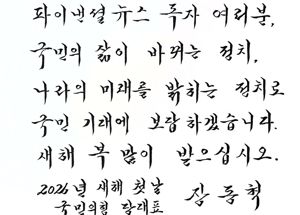 파이낸셜뉴스 독자 여러분,
국민의 삶이 바뀌는 정치,
나라의 미래를 밝히는 정치로
국민 기대에 보답하겠습니다.
새해 복 많이 받으십시오.
2026년 새해 첫날
국민의힘 당대표 장동혁